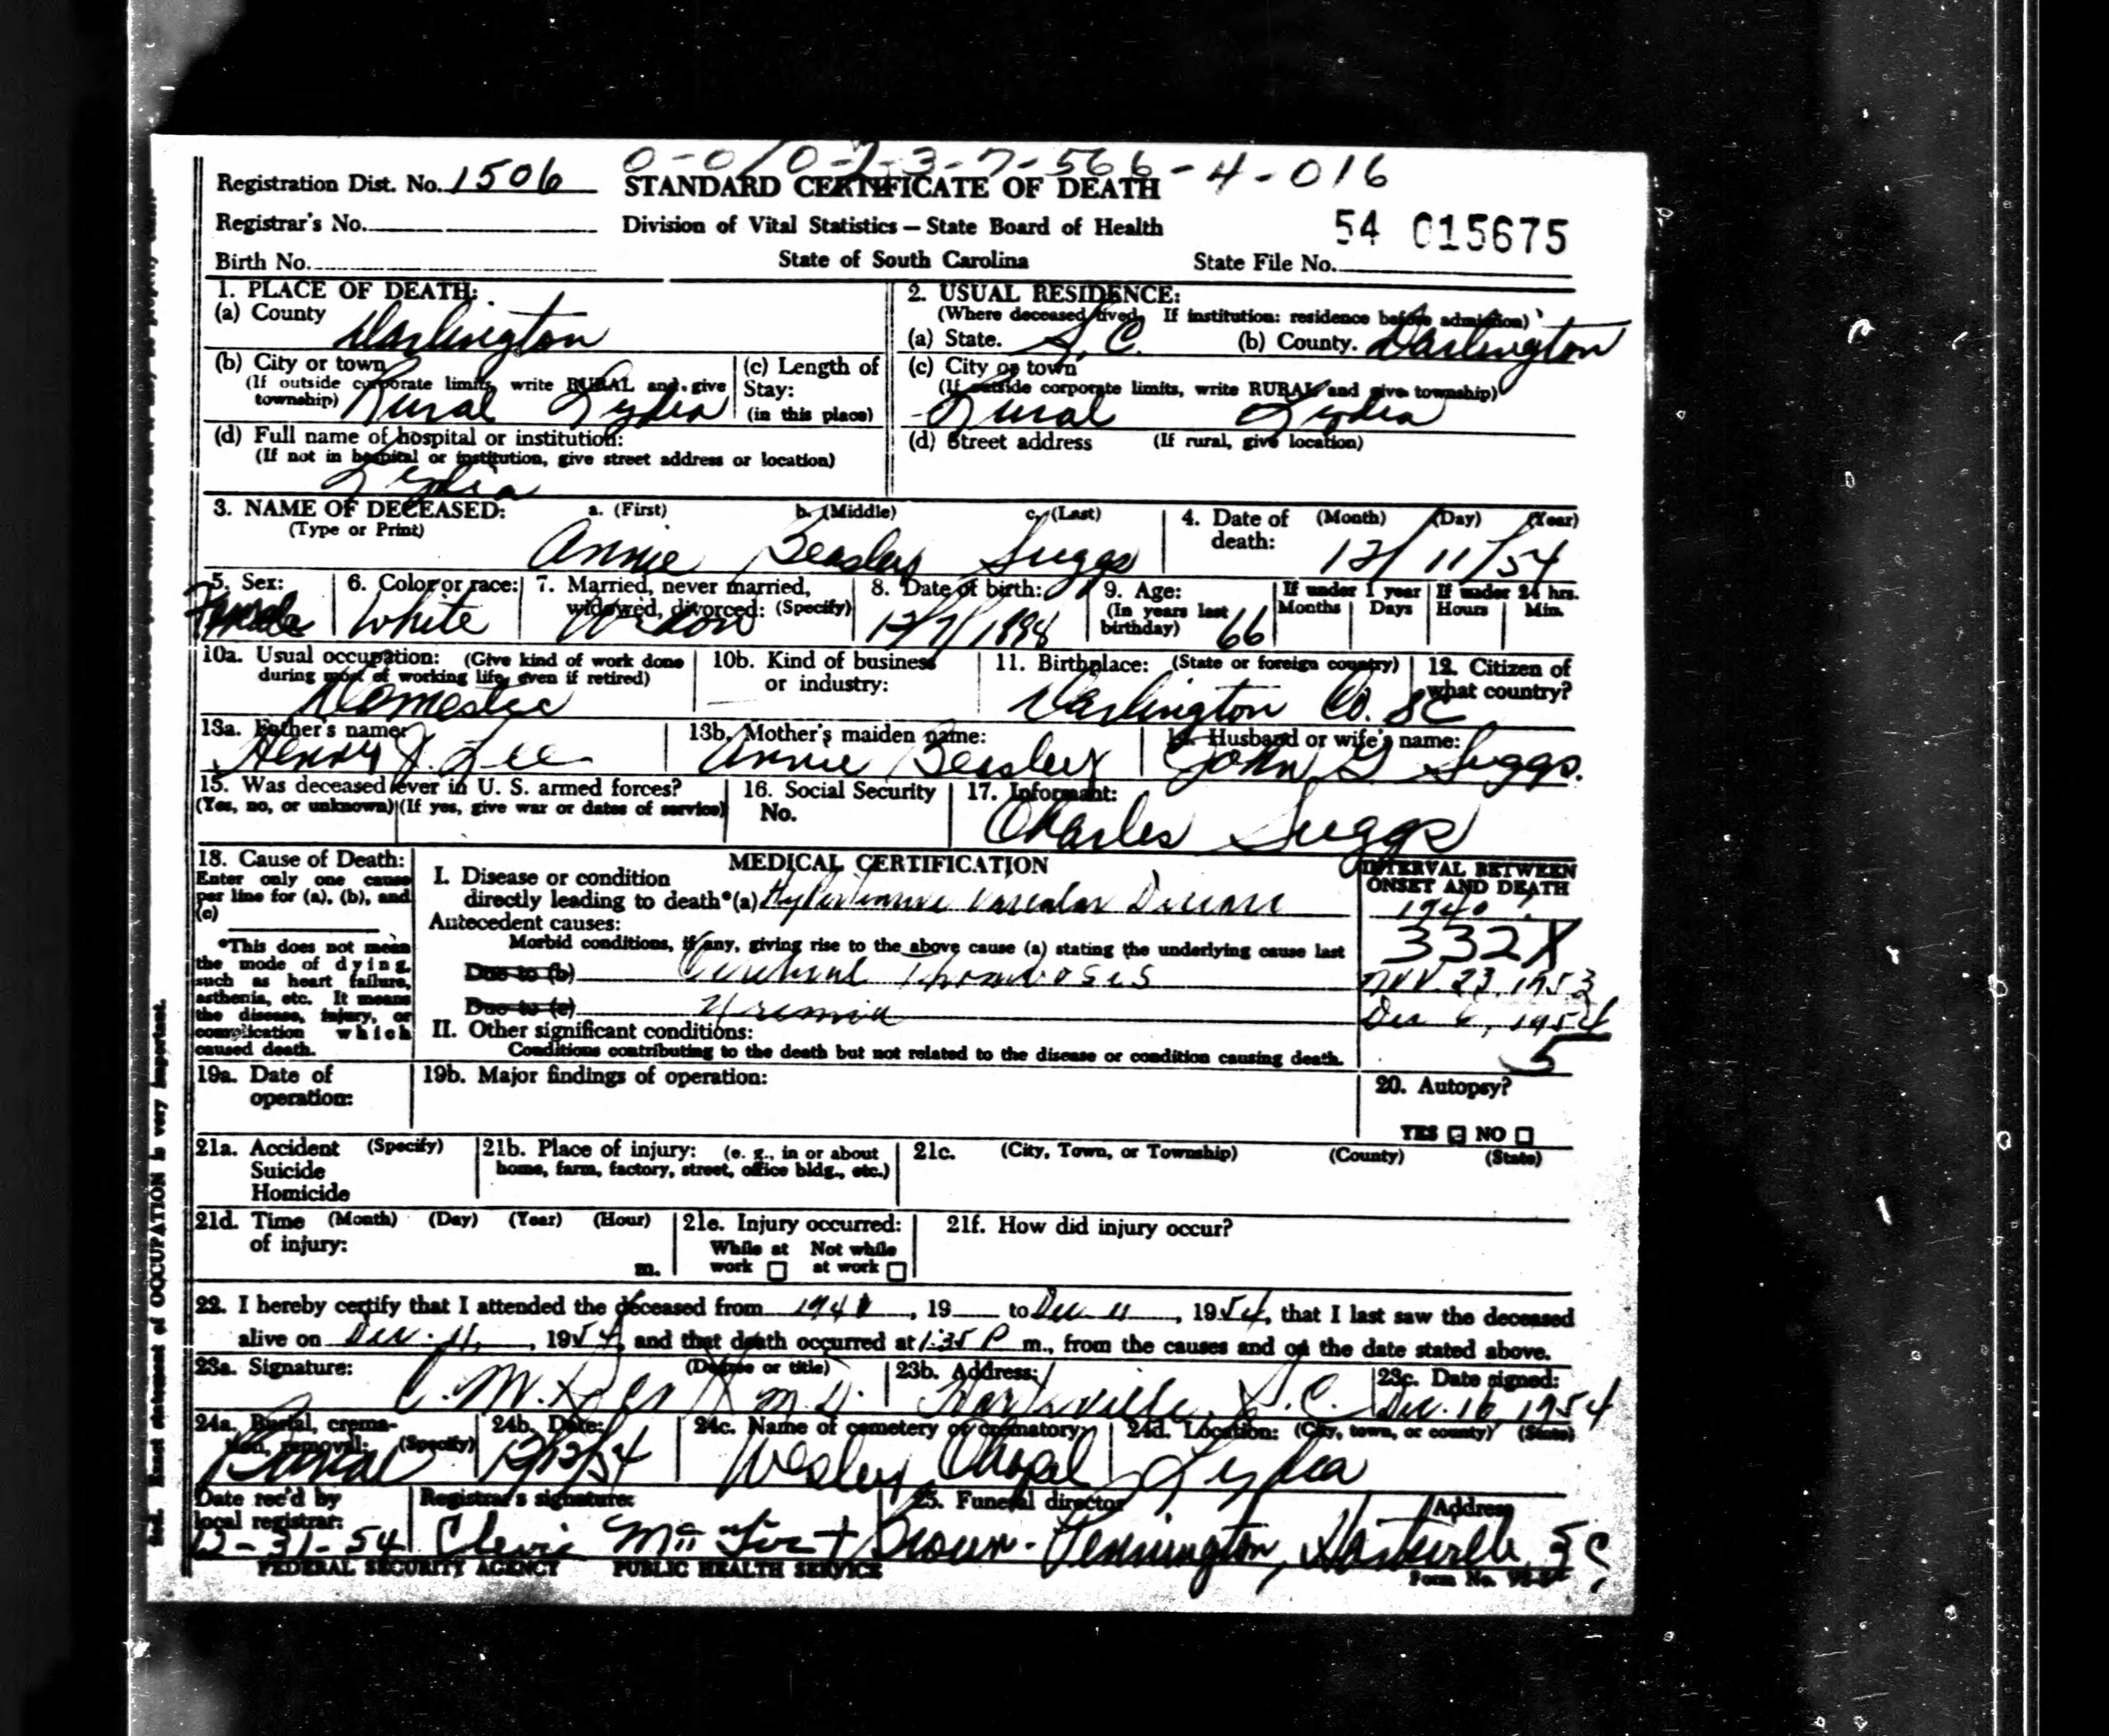 0-0/0-2-3-7-566-4-016
Registration Dist. No. 1506 STANDARD CERTIFICATE OF DEATH
Registrar's No. Division of Vital Statistics — State Board of Health 54 015675
Birth No. State of South Carolina State File No.
1. PLACE OF DEATH: 2. USUAL RESIDENCE:
(a) County Darlington (Where deceased lived. If institution: residence before admission)
(a) State. S.C. (b) County. Darlington
(b) City or town (c) Length of Stay: (in this place) (c) City or town
(If outside corporate limits, write RURAL and give township) Rural Lydia (If outside corporate limits, write RURAL and give township) Rural Lydia
(d) Full name of hospital or institution: (d) Street address (If rural, give location)
(If not in hospital or institution, give street address or location)
Lydia
3. NAME OF DECEASED: a. (First) b. (Middle) c. (Last) 4. Date of death: (Month) (Day) (Year)
(Type or Print) Annie Beasley Suggs 12/11/54
5. Sex: 6. Color or race: 7. Married, never married, widowed, divorced: (Specify) 8. Date of birth: 9. Age: (In years last birthday) If under 1 year Months Days If under 24 hrs. Hours Min.
Female White Widow 12/7/1888 66
10a. Usual occupation: (Give kind of work done during most of working life, even if retired) 10b. Kind of business or industry: 11. Birthplace: (State or foreign country) 12. Citizen of what country?
Domestic Darlington Co. SC
13a. Father's name: 13b. Mother's maiden name: 14. Husband or wife's name:
Henry J. Lee Annie Beasley John G Suggs.
15. Was deceased ever in U. S. armed forces? 16. Social Security No. 17. Informant:
(Yes, no, or unknown) (If yes, give war or dates of service) Charles Suggs
18. Cause of Death: Enter only one cause per line for (a), (b), and (c)
MEDICAL CERTIFICATION INTERVAL BETWEEN ONSET AND DEATH
I. Disease or condition
directly leading to death*(a) Hypertensive Vascular Disease 1940 ?
Antecedent causes: 332X
Morbid conditions, if any, giving rise to the above cause (a) stating the underlying cause last
*This does not mean the mode of dying, such as heart failure, asthenia, etc. It means the disease, injury, or complication which caused death.
Due to (b) Cerebral Thrombosis Nov. 23, 1953
Due to (c) Uremia Dec 6, 1954
II. Other significant conditions:
Conditions contributing to the death but not related to the disease or condition causing death. 5
19a. Date of operation: 19b. Major findings of operation: 20. Autopsy?
YES NO
21a. Accident (Specify) Suicide Homicide 21b. Place of injury: (e. g., in or about home, farm, factory, street, office bldg., etc.) 21c. (City, Town, or Township) (County) (State)
21d. Time (Month) (Day) (Year) (Hour) of injury: m. 21e. Injury occurred: While at work Not while at work 21f. How did injury occur?
22. I hereby certify that I attended the deceased from 1940, 19 to Dec 11, 1954, that I last saw the deceased
alive on Dec. 11, 1954, and that death occurred at 1:35 P m., from the causes and on the date stated above.
23a. Signature: (Degree or title) 23b. Address: 23c. Date signed:
C. M. M.D. Hartsville, S.C. Dec. 16, 1954
24a. Burial, cremation, removal: (Specify) 24b. Date: 24c. Name of cemetery or crematory: 24d. Location: (City, town, or county) (State)
Burial 12/12/54 Wesley Chapel Lydia
Date rec'd by local registrar: Registrar's signature: 25. Funeral director Address
12-31-54 Brown-Pennington, Hartsville, SC
FEDERAL SECURITY AGENCY PUBLIC HEALTH SERVICE Form No.
Exact statement of OCCUPATION is very important.